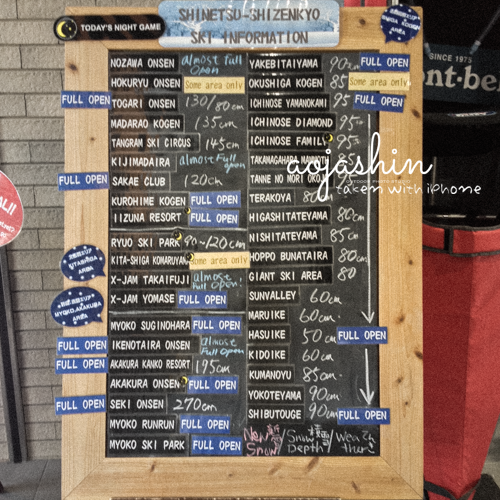 TODAY'S NIGHT GAME
SHINETSU-SHIZENKYO
SKI INFORMATION
NOZAWA ONSEN almost full open
HOKURYU ONSEN Some area only
FULL OPEN TOGARI ONSEN 130/80cm
MADARAO KOGEN 135cm
TANGRAM SKI CIRCUS 145cm
KIJIMADAIRA almost Full open
FULL OPEN SAKAE CLUB 120cm
KUROHIME KOGEN FULL OPEN
IIZUNA RESORT FULL OPEN
RYUO SKI PARK 90~120cm
KITA-SHIGA KOMARUYAMA Some area only
X-JAM TAKAIFUJI almost Full Open.
X-JAM YOMASE FULL OPEN
MYOKO SUGINOHARA FULL OPEN
FULL OPEN IKENOTAIRA ONSEN almost Full Open
FULL OPEN AKAKURA KANKO RESORT 195cm
AKAKURA ONSEN FULL OPEN
FULL OPEN SEKI ONSEN 270cm
MYOKO RUNRUN FULL OPEN
MYOKO SKI PARK FULL OPEN
YAKEBITAIYAMA 90cm FULL OPEN
OKUSHIGA KOGEN 85 Some area only
ICHINOSE YAMANOKAMI 95 FULL OPEN
ICHINOSE DIAMOND 95
ICHINOSE FAMILY 95
TAKAMAGAHARA MAMMOTH
TANNE NO MORI OKOJO
TERAKOYA 80cm
HIGASHITATEYAMA 80cm
NISHITATEYAMA 85cm
HOPPO BUNAIRA 80cm
GIANT SKI AREA 80
SUNVALLEY 60cm
MARUIKE 60cm
HASUIKE 50cm FULL OPEN
KIDOIKE 60cm
KUMANOYU 85cm
YOKOTEYAMA 90cm
SHIBUTOUGE 90cm FULL OPEN
New Snow / Snow Depth / Weather
MYOKO.AKAKURA
AREA
SINCE 1975
ont-bel
aojashin
taken with iPhone